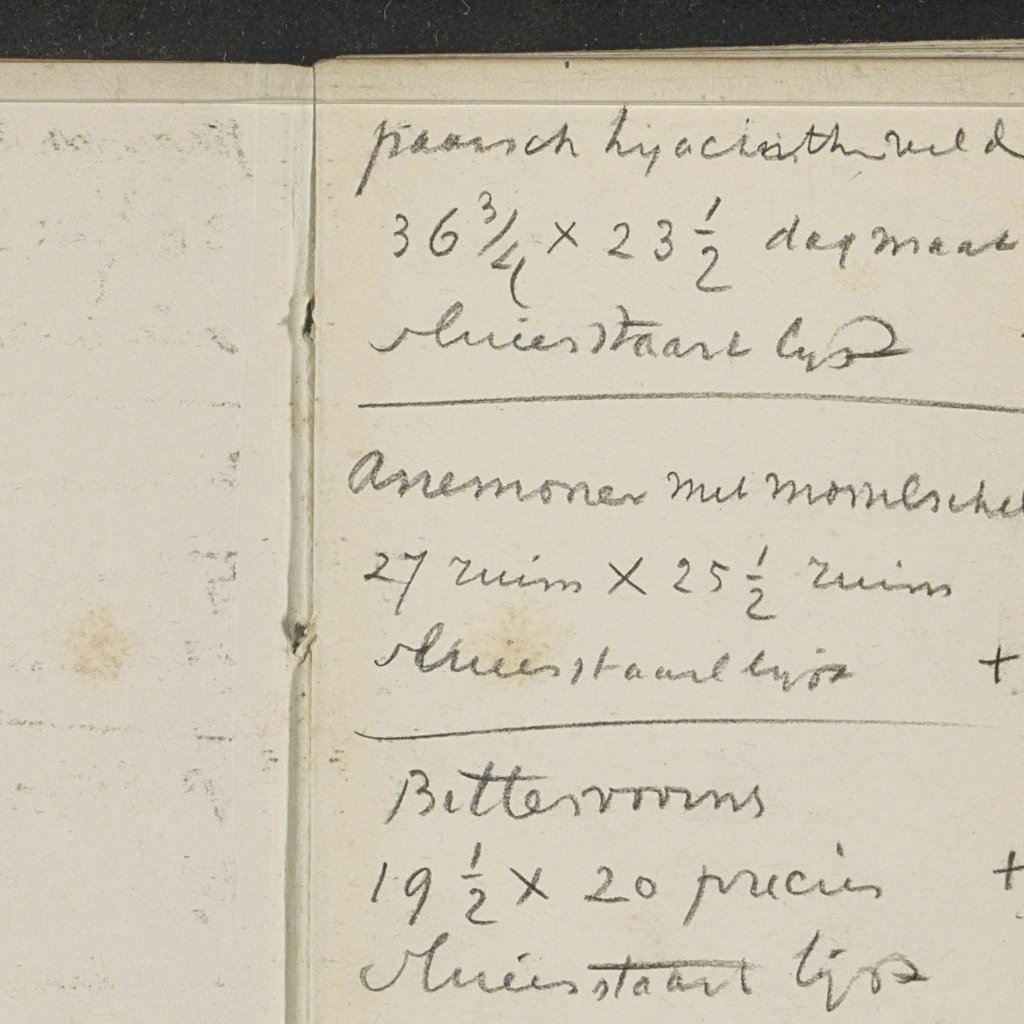 paarsch hyacinthenveld
36 3/4 × 23 1/2 dagmaat
Muizestaart lijst
Anemonen met mosselschel
27 ruim × 25 1/2 ruim
Muizestaart lijst
+
Bittervoorns
19 1/2 × 20 precies
+
Muizestaart lijst